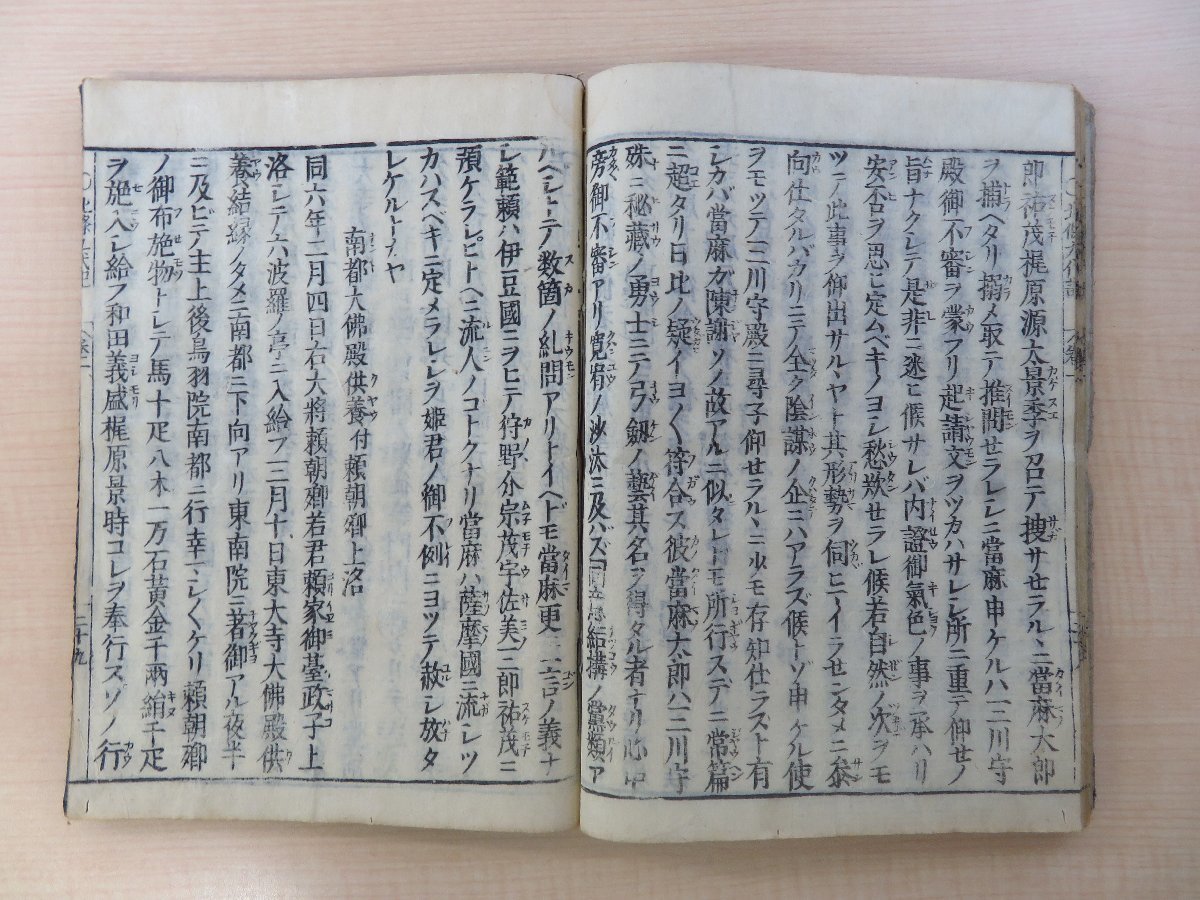 郎祐茂梶原源太景季ヲ召テ捜サセラルヽニ當麻太郎
ヲ捕ヘタリ搦メ取テ推問セラレシニ當麻申ケルハ三川守
殿御不審ヲ蒙フリ起請文ヲツカハサレシ所ニ重テ仰セノ
旨ナクシテ是非ニ迷ヒ候サレバ内證御氣色ノ事ヲ承ハリ
安否ヲ思ヒ定ムベキノヨシ愁歎セラレ候若自然ノ次ヲモ
ツテ此事ヲ御出サルヽヤト其形勢ヲ伺ヒマイラセンタメニ参
向仕タルバカリニテ全ク陰謀ノ企ニハアラズ候トゾ申ケル使
ヲモツテ三川守殿ニ尋子仰セラルヽニ此モ存知仕ラズト有
シカバ當麻ガ陳謝ソノ故アルニ似タレトモ所行ステニ常篇
ニ超タリ日比ノ疑イヨ〱符合ス彼當麻太郎ハ三川守
殊ニ秘藏ノ勇士ニテ弓劔ノ藝其名ヲ得タル者ナリ心中
旁御不審アリ寛宥ノ沙汰ニ及バズ結構ノ黨類ア
ルベシトテ数箇ノ糺問アリトイヘドモ當麻更ニ一言ノ義ナ
シ範頼ハ伊豆國ニヲヒテ狩野介宗茂宇佐美三郎祐茂ニ
預ケラレヒトヘニ流人ノコトクナリ當麻ハ薩摩國ニ流シツ
カハスベキニ定メラレシヲ姫君ノ御不例ニヨツテ赦シ放タ
レケルトカヤ
南都大佛殿供養付頼朝卿上洛
同六年二月四日右大將頼朝卿若君頼家御臺政子上
洛シテ六波羅ノ亭ニ入給フ三月十日東大寺大佛殿供
養結縁ノタメニ南都ニ下向アリ東南院ニ著御アル夜半
ニ及ビテ主上後鳥羽院南都ニ行幸マシ〱ケリ頼朝卿
ノ御布施物トシテ馬十疋八木一万石黄金千両絹千疋
ヲ施入シ給フ和田義盛梶原景時コレヲ奉行スソノ行